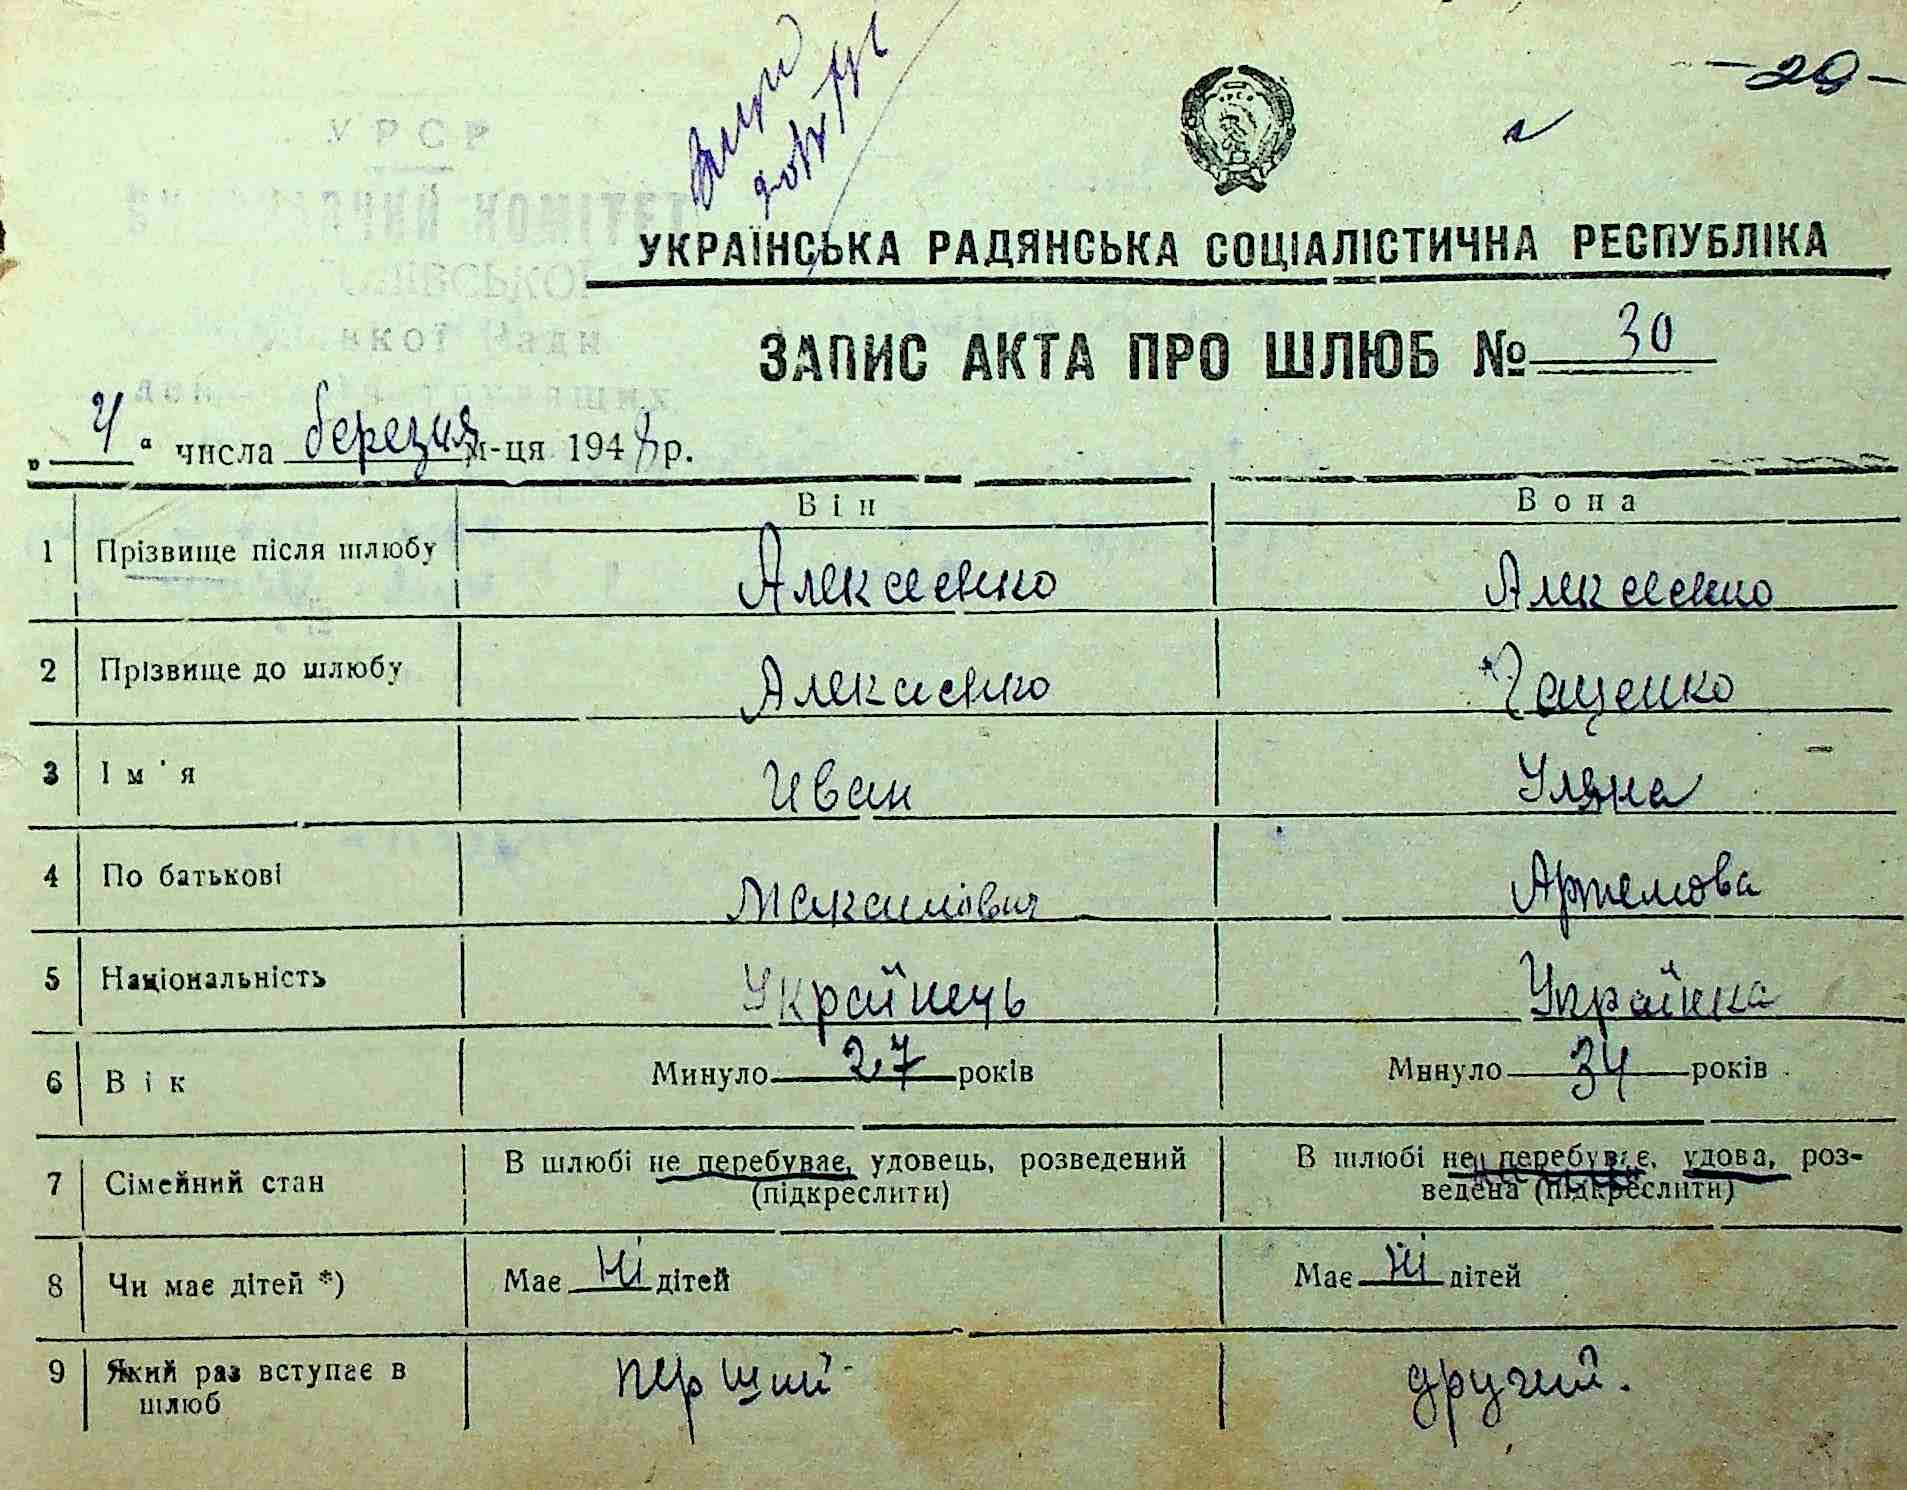 -29-
УРСР
КОМІТЕТ
УКРАЇНСЬКА РАДЯНСЬКА СОЦІАЛІСТИЧНА РЕСПУБЛІКА
ЗАПИС АКТА ПРО ШЛЮБ № 30
„ 4 “ числа березня м-ця 1948 р.
Він Вона
1 Прізвище після шлюбу Алексеєнко Алексеєнко
2 Прізвище до шлюбу Алексиенко Гащенко
3 Ім'я Иван Уляна
4 По батькові Максимович Артемова
5 Національність Українець Українка
6 Вік Минуло 27 років Минуло 34 років
7 Сімейний стан В шлюбі не перебуває, удовець, розведений (підкреслити) В шлюбі не перебуває, удова, роз-
ведена (підкреслити)
8 Чи має дітей *) Має Ні дітей Має Ні дітей
9 Який раз вступає в перший другий.
шлюб